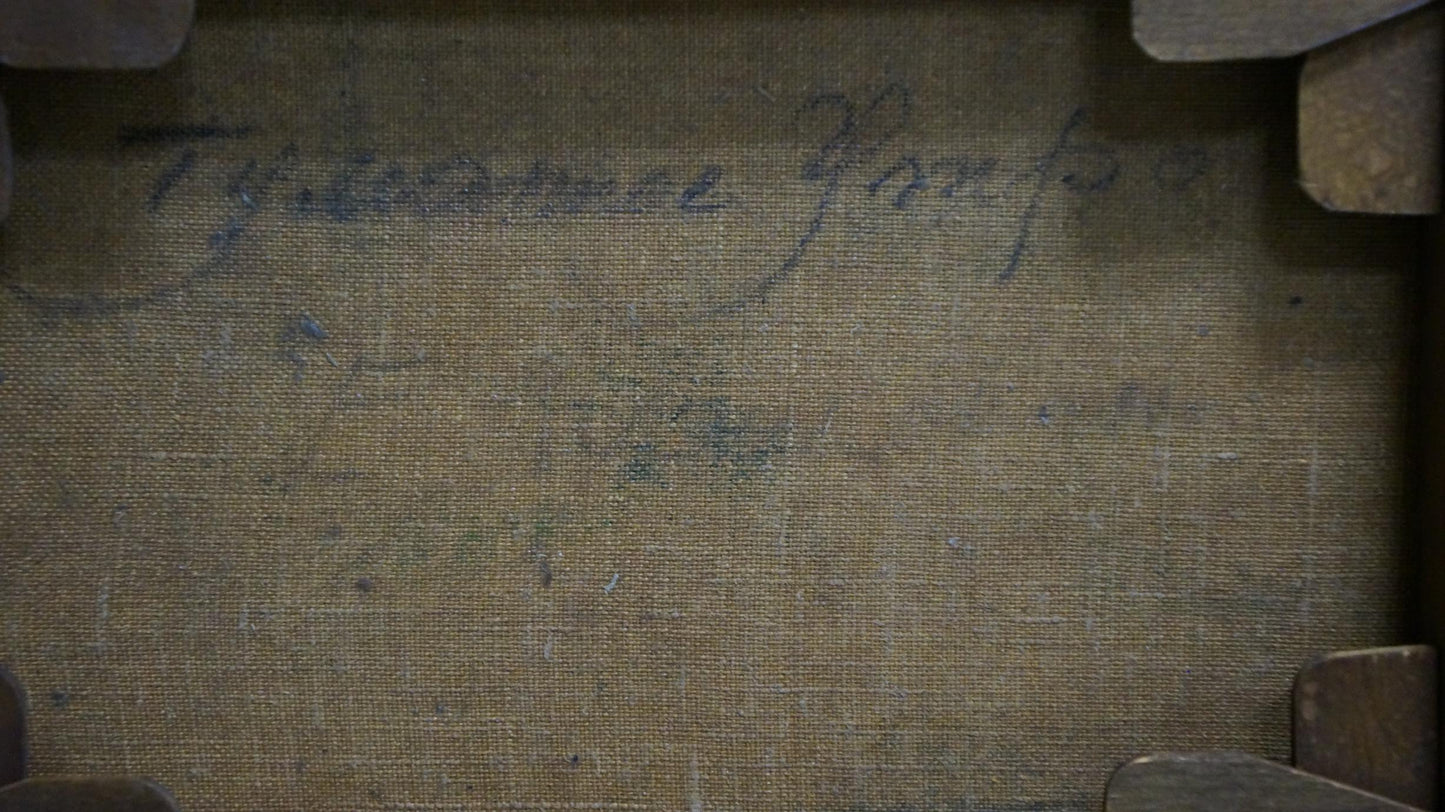 Туманное Утро